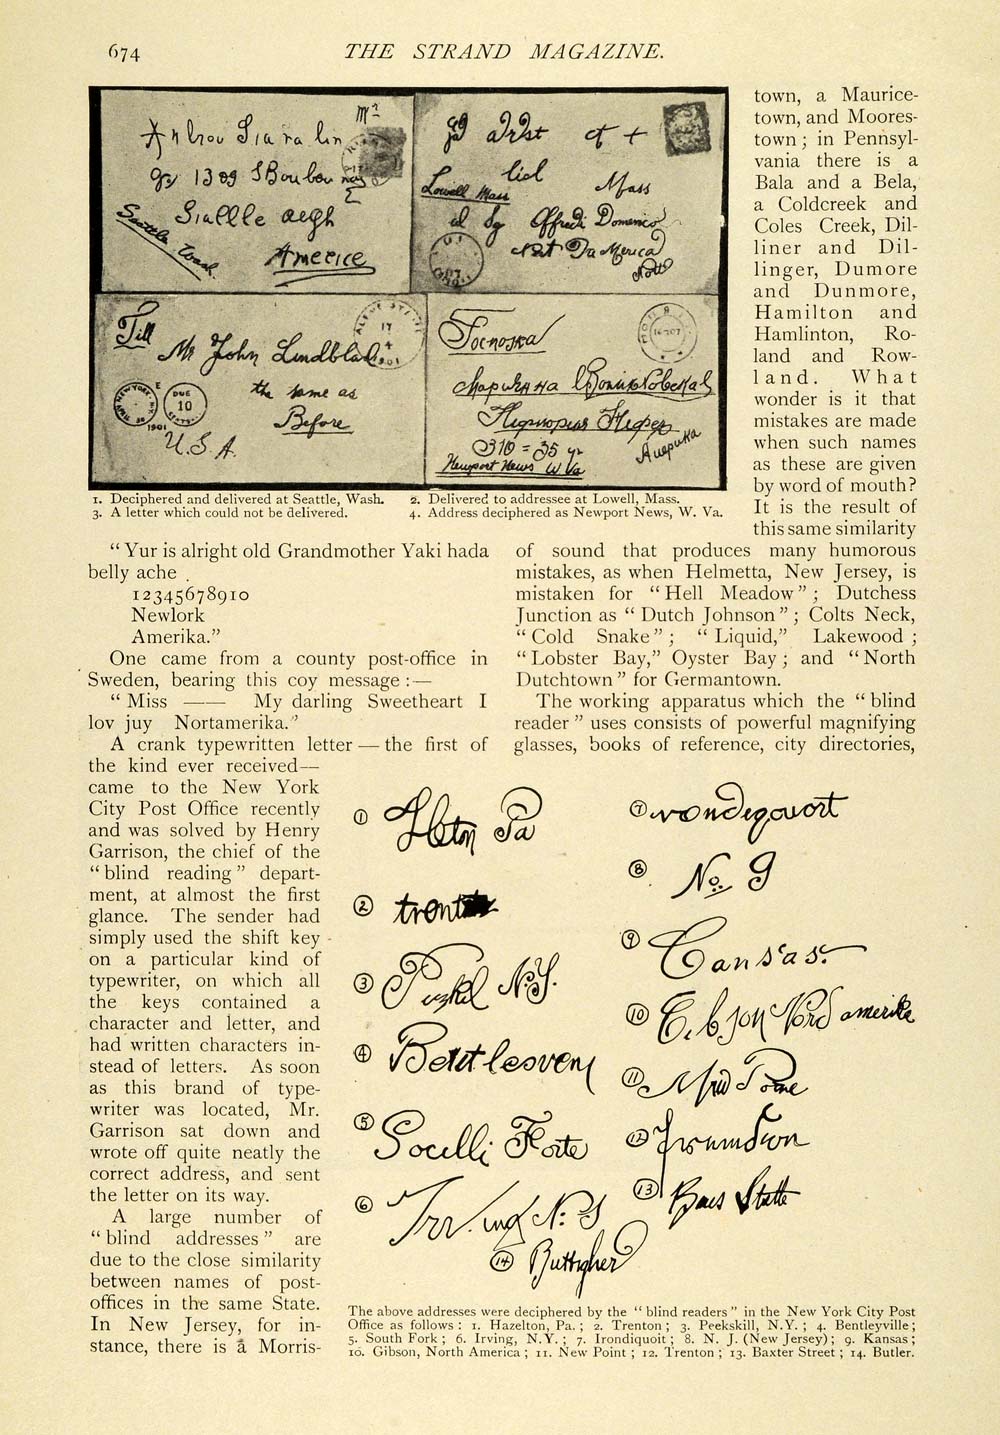 674
THE STRAND MAGAZINE.
1309 S Bourbon
Siallle
Seattle Wash.
Ameerice
Lowell Mass
Mass
Offredi Domenico
Till
Mr John Lindblad
the same as
Before
NEW YORK, N.Y.
1901
DUE
10
U.S.A.
17
4
1901
Госпожа
310 = 35
Newport News W Va
Америка
1. Deciphered and delivered at Seattle, Wash.
2. Delivered to addressee at Lowell, Mass.
3. A letter which could not be delivered.
4. Address deciphered as Newport News, W. Va.
town, a Maurice-
town, and Moores-
town; in Pennsyl-
vania there is a
Bala and a Bela,
a Coldcreek and
Coles Creek, Dil-
liner and Dil-
linger, Dumore
and Dunmore,
Hamilton and
Hamlinton, Ro-
land and Row-
land. What
wonder is it that
mistakes are made
when such names
as these are given
by word of mouth?
It is the result of
this same similarity
"Yur is alright old Grandmother Yaki hada
belly ache .
12345678910
Newlork
Amerika."
One came from a county post-office in
Sweden, bearing this coy message:—
"Miss —— My darling Sweetheart I
lov juy Nortamerika."
A crank typewritten letter—the first of
the kind ever received—
came to the New York
City Post Office recently
and was solved by Henry
Garrison, the chief of the
"blind reading" depart-
ment, at almost the first
glance. The sender had
simply used the shift key
on a particular kind of
typewriter, on which all
the keys contained a
character and letter, and
had written characters in-
stead of letters. As soon
as this brand of type-
writer was located, Mr.
Garrison sat down and
wrote off quite neatly the
correct address, and sent
the letter on its way.
A large number of
"blind addresses" are
due to the close similarity
between names of post-
offices in the same State.
In New Jersey, for in-
stance, there is a Morris-
of sound that produces many humorous
mistakes, as when Helmetta, New Jersey, is
mistaken for "Hell Meadow"; Dutchess
Junction as "Dutch Johnson"; Colts Neck,
"Cold Snake"; "Liquid," Lakewood;
"Lobster Bay," Oyster Bay; and "North
Dutchtown" for Germantown.
The working apparatus which the "blind
reader" uses consists of powerful magnifying
glasses, books of reference, city directories,
1 Hleton Pa
2 trent
3 Puzkil N.Y.
4 Bettlesveny
5 Socelli Forte
6 Irving N. S
7 vondeqouort
8 No. 9
9 Cansas.
10 C, b, son Nord amerika
11 Nfu Pome
12
13 Baes Statte
14 Buttigher
The above addresses were deciphered by the "blind readers" in the New York City Post
Office as follows: 1. Hazelton, Pa.; 2. Trenton; 3. Peekskill, N.Y.; 4. Bentleyville;
5. South Fork; 6. Irving, N.Y.; 7. Irondiquoit; 8. N. J. (New Jersey); 9. Kansas;
10. Gibson, North America; 11. New Point; 12. Trenton; 13. Baxter Street; 14. Butler.